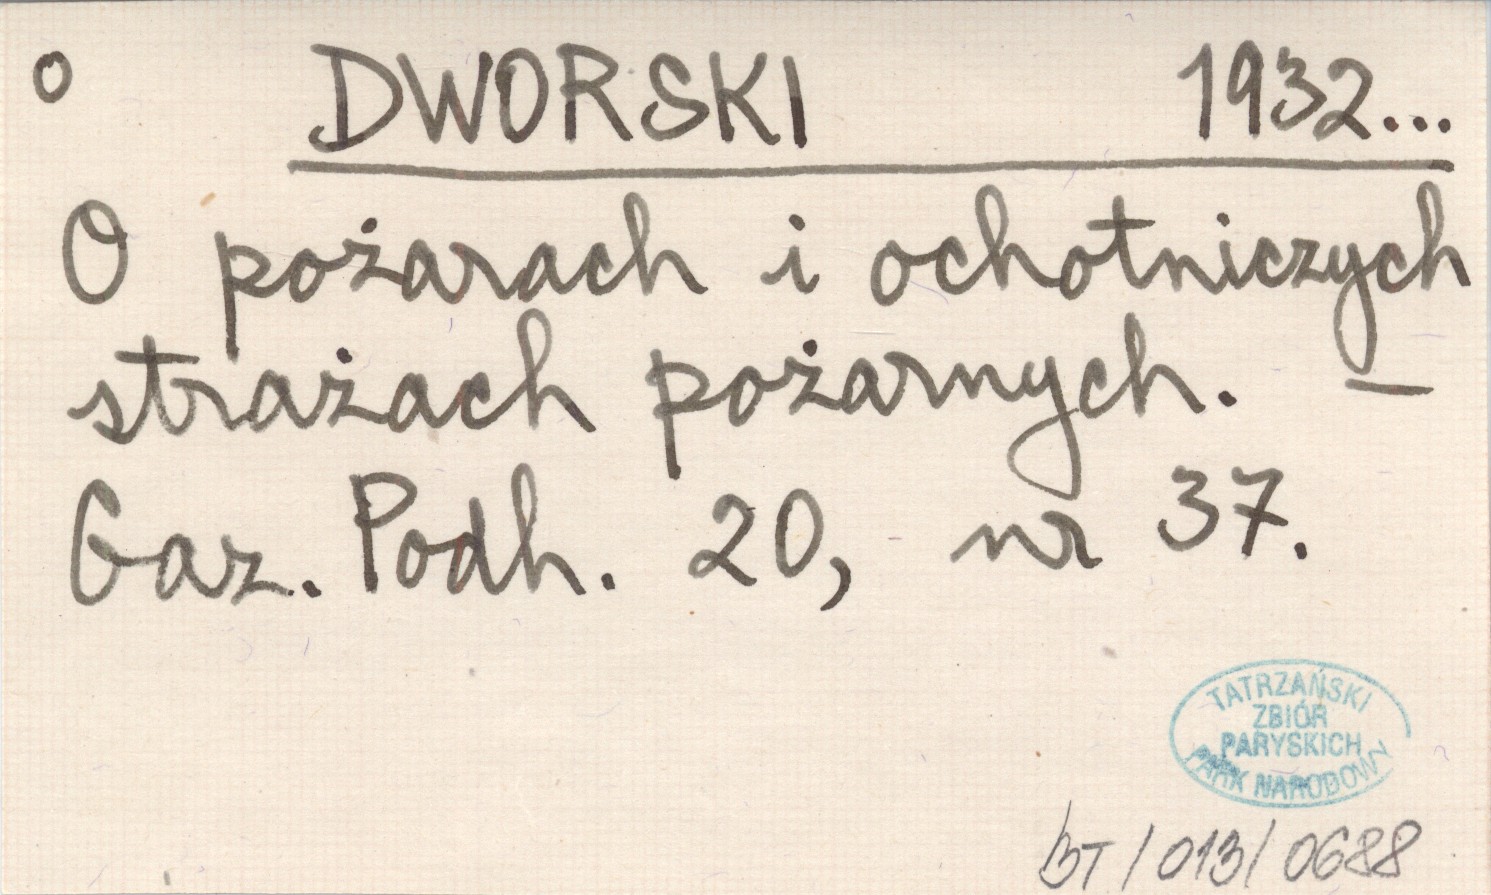 o DWORSKI 1932...
O pożarach i ochotniczych
strażach pożarnych. —
Gaz. Podh. 20, nr 37.
TATRZAŃSKI
ZBIÓR
PARYSKICH
PARK NARODOWY
BT/013/0688